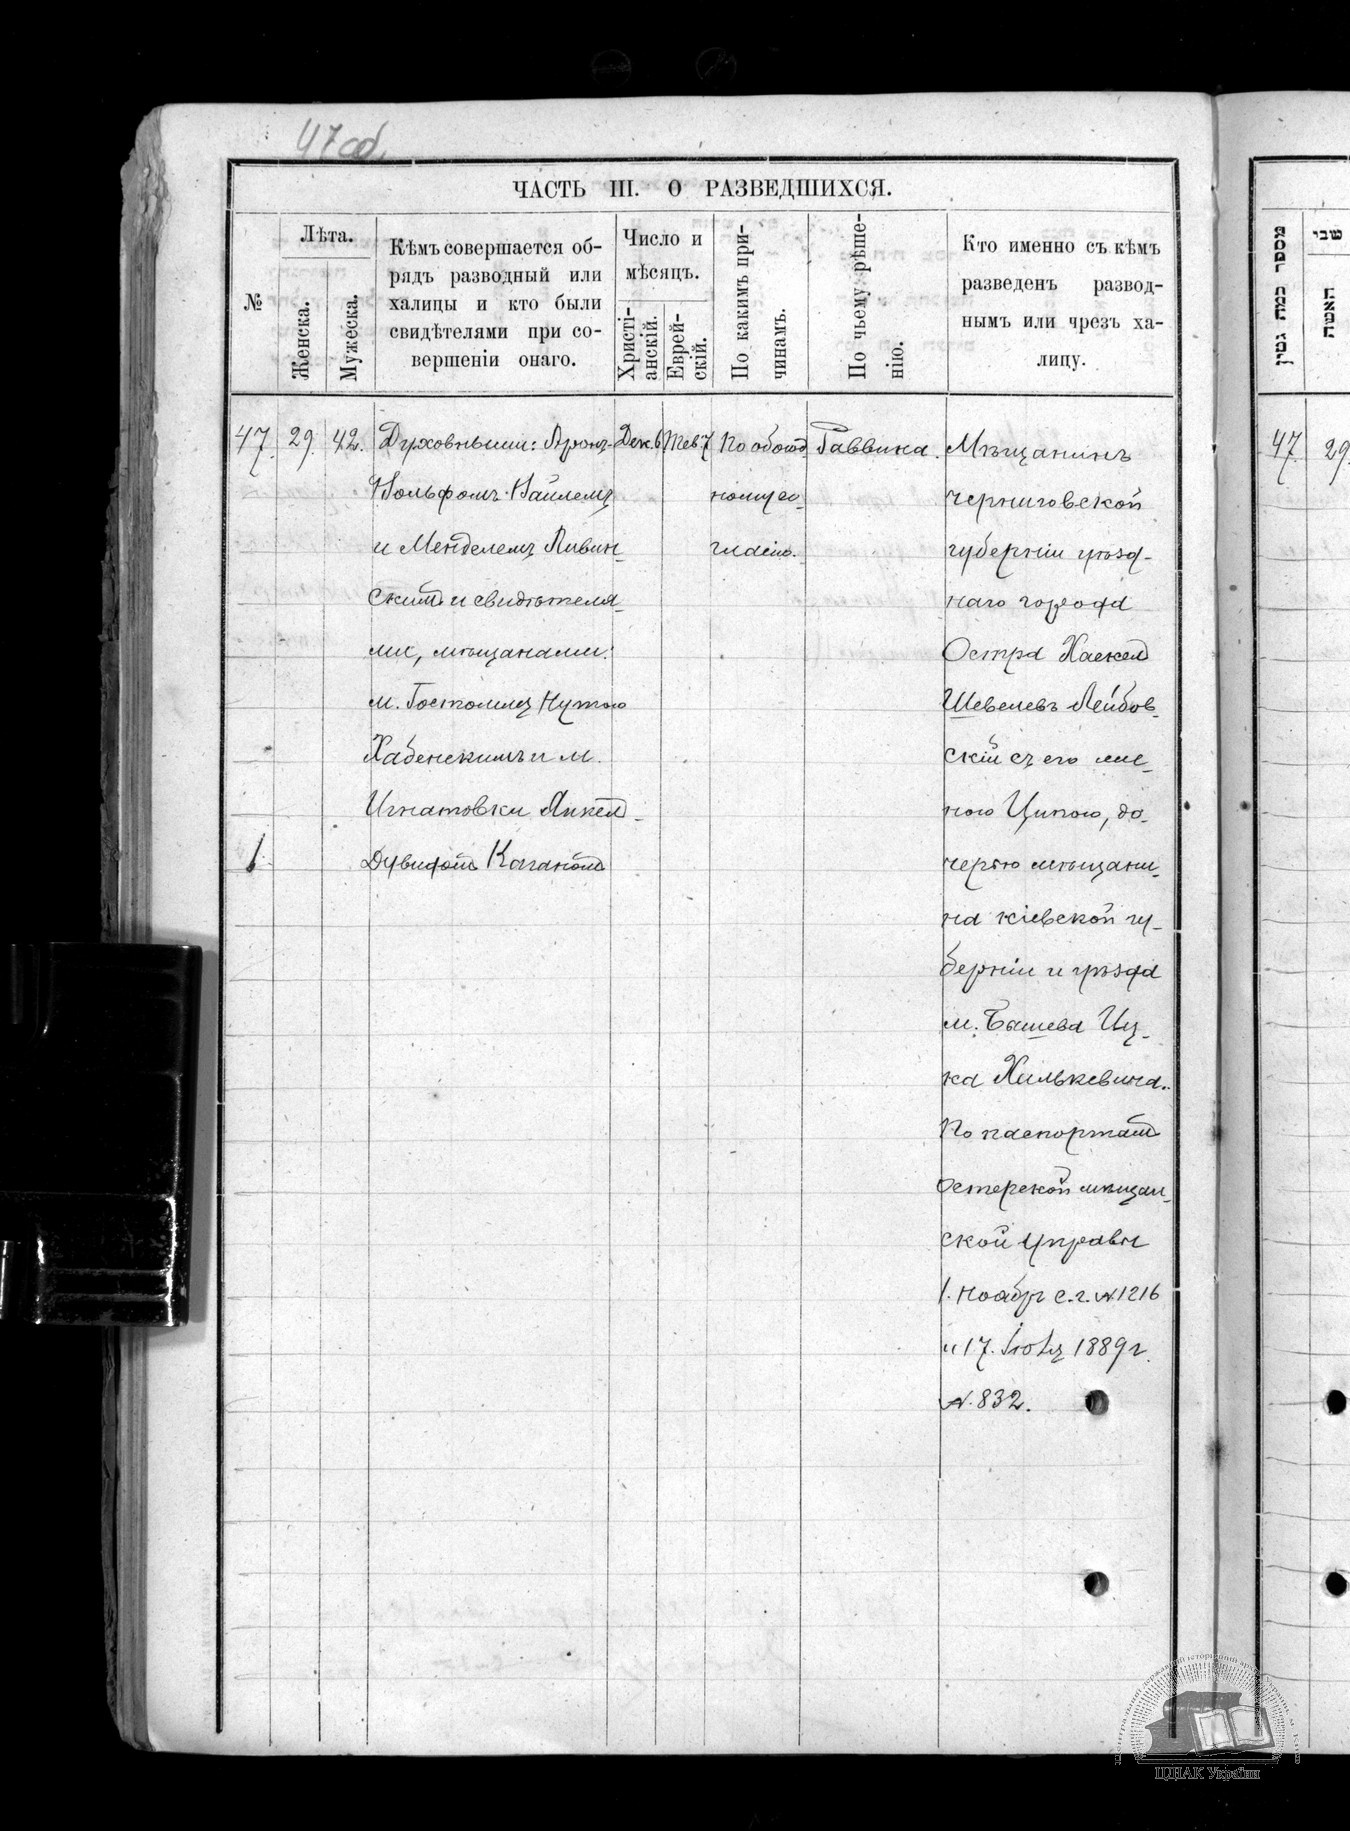 47 об.
ЧАСТЬ III. О РАЗВЕДШИХСЯ.
№
Лѣта.
Женска.
Мужеска.
Кѣмъ совершается об-
рядъ разводный или
халицы и кто были
свидѣтелями при со-
вершеніи онаго.
Число и
мѣсяцъ.
Христі-
анскій.
Еврей-
скій.
По какимъ при-
чинамъ.
По чьему рѣше-
нію.
Кто именно съ кѣмъ
разведенъ развод-
нымъ или чрезъ ха-
лицу.
47. 29. 42.
Духовными: Аронъ-
Вольфомъ
и Менделемъ Ливин-
скимъ и свидѣтеля-
ми, мѣщанами:
м. Гостомля Нутою
Хабенскимъ и м.
Игнатовки Янкел-
Дувидомъ Каганомъ
Дек. 6
Тев. 7
По обоюд
ному со-
гласію.
Раввина.
Мѣщанинъ
черниговской
губерніи уѣзд-
наго города
Остра Хаскел
Шевелевъ Лейбов-
скій съ его же-
ною Ципою, до-
черью мѣщани-
на кіевской гу-
берніи и уѣзда
м. Бышева Иц-
ка Хилькевича.
По паспортамъ
Остерской мѣщан-
ской управы
1. Ноабр с. г. №1216
и 17. 1889 г.
№. 832.
1
מספר כמה גטין
שני
האשה
47. 29.
ЦДІАК України